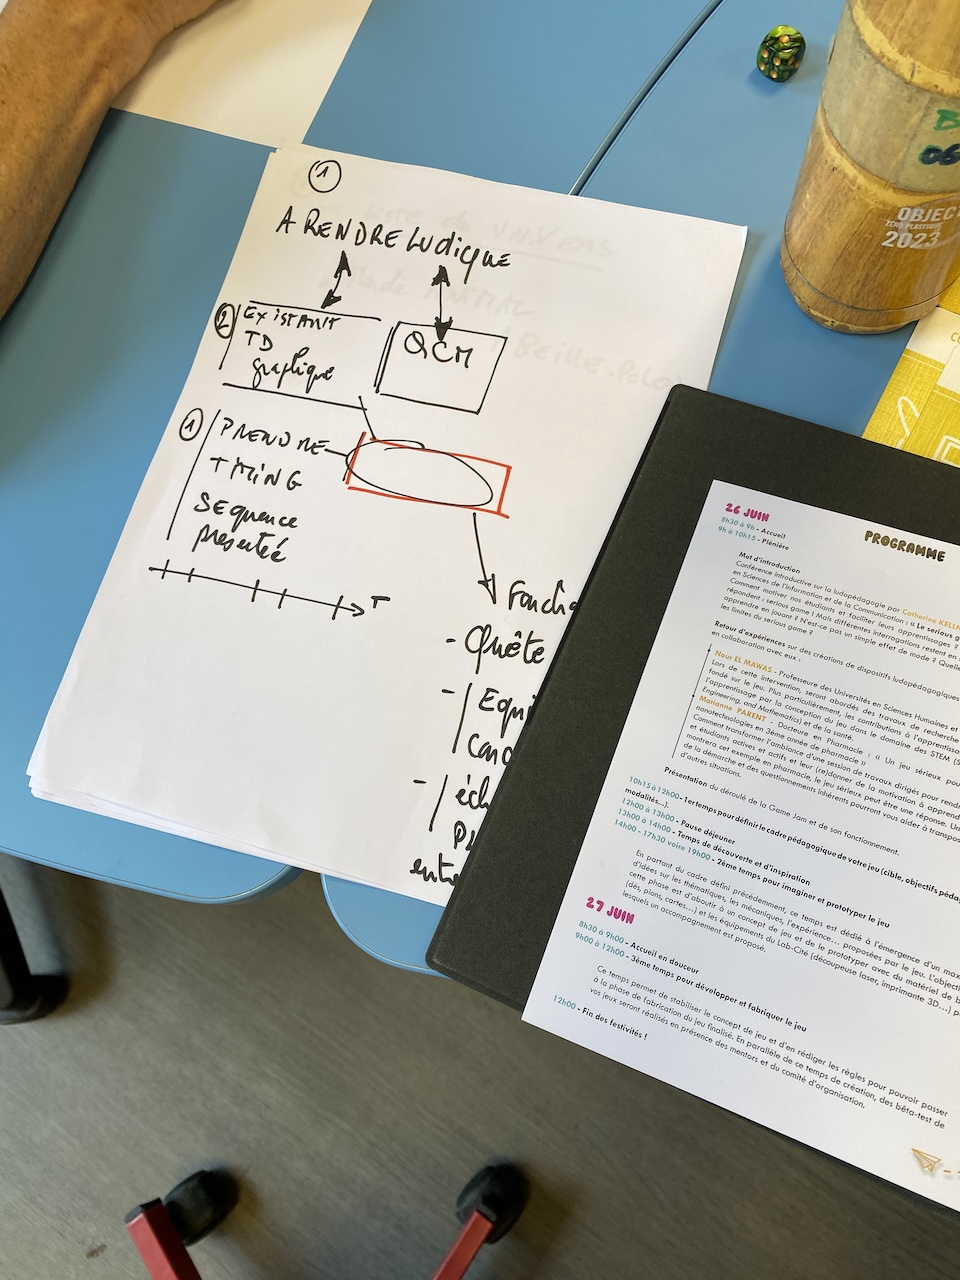 1
A RENDRE LUDIQUE
2
EXISTANT
TD
graphique
QCM
1
PRENDRE
TIMING
SEQUENCE
présentée
T
- Quête
-
Equi
-
éch
entre
OBJEC
ZÉRO PLASTIQUE
2023
06
PROGRAMME
26 JUIN
8h30 à 9h - Accueil
9h à 10h15 - Plénière
Mot d'introduction
Conférence introductive sur la ludopédagogie par Catherine KELLN
en Sciences de l'Information et de la Communication : « Le serious g
Comment motiver nos étudiants et faciliter leurs apprentissages ?
répondent : serious game ! Mais différentes interrogations restent en
apprendre en jouant ? N'est-ce pas un simple effet de mode ? Quelle
les limites du serious game ?
Retour d'expériences sur des créations de dispositifs ludopédagogiques
en collaboration avec eux :
Nour EL MAWAS - Professeure des Universités en Sciences Humaines et
Lors de cette intervention, seront abordés des travaux de recherche
fondé sur le jeu. Plus particulièrement, les contributions à l'apprentissa
l'apprentissage par la conception du jeu dans le domaine des STEM (S
Engineering, and Mathematics) et de la santé.
Marianne PARENT - Docteure en Pharmacie : « Un jeu sérieux pou
nanotechnologies en 3ème année de pharmacie »
Comment transformer l'ambiance d'une session de travaux dirigés pour rend
et étudiants actives et actifs et leur (re)donner de la motivation à apprend
montrera cet exemple en pharmacie, le jeu sérieux peut être une réponse. Un
de la démarche et des questionnements inhérents pourront vous aider à transpos
d'autres situations.
Présentation du déroulé de la Game Jam et de son fonctionnement.
10h15 à 12h00 - 1er temps pour définir le cadre pédagogique de votre jeu (cible, objectifs pédag
modalités...).
12h00 à 13h00 - Pause déjeuner
13h00 à 14h00 - Temps de découverte et d'inspiration
14h00 - 17h30 voire 19h00 - 2ème temps pour imaginer et prototyper le jeu
En partant du cadre défini précédemment, ce temps est dédié à l'émergence d'un max
d'idées sur les thématiques, les mécaniques, l'expérience... proposées par le jeu. L'objecti
cette phase est d'aboutir à un concept de jeu et de le prototyper avec du matériel de b
(dés, pions, cartes...) et les équipements du Lab-Cité (découpeuse laser, imprimante 3D...) p
lesquels un accompagnement est proposé.
27 JUIN
8h30 à 9h00 - Accueil en douceur
9h00 à 12h00 - 3ème temps pour développer et fabriquer le jeu
Ce temps permet de stabiliser le concept de jeu et d'en rédiger les règles pour pouvoir passer
à la phase de fabrication du jeu finalisé. En parallèle de ce temps de création, des bêta-test de
vos jeux seront réalisés en présence des mentors et du comité d'organisation.
12h00 - Fin des festivités !